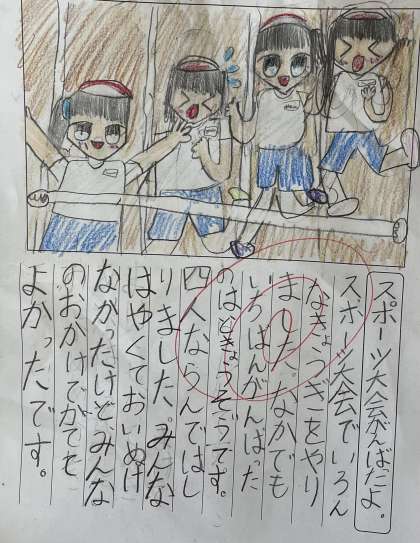 スポーツ大会がんばたよ。
スポーツ大会でいろん
なきょうぎをやり
ました。なかでも
いちばんがんばった
のはどきょうぞうです。
四人ならんではし
りました。みんな
はやくておいぬけ
なかったけどみんな
のおかけでがても
よかったです。